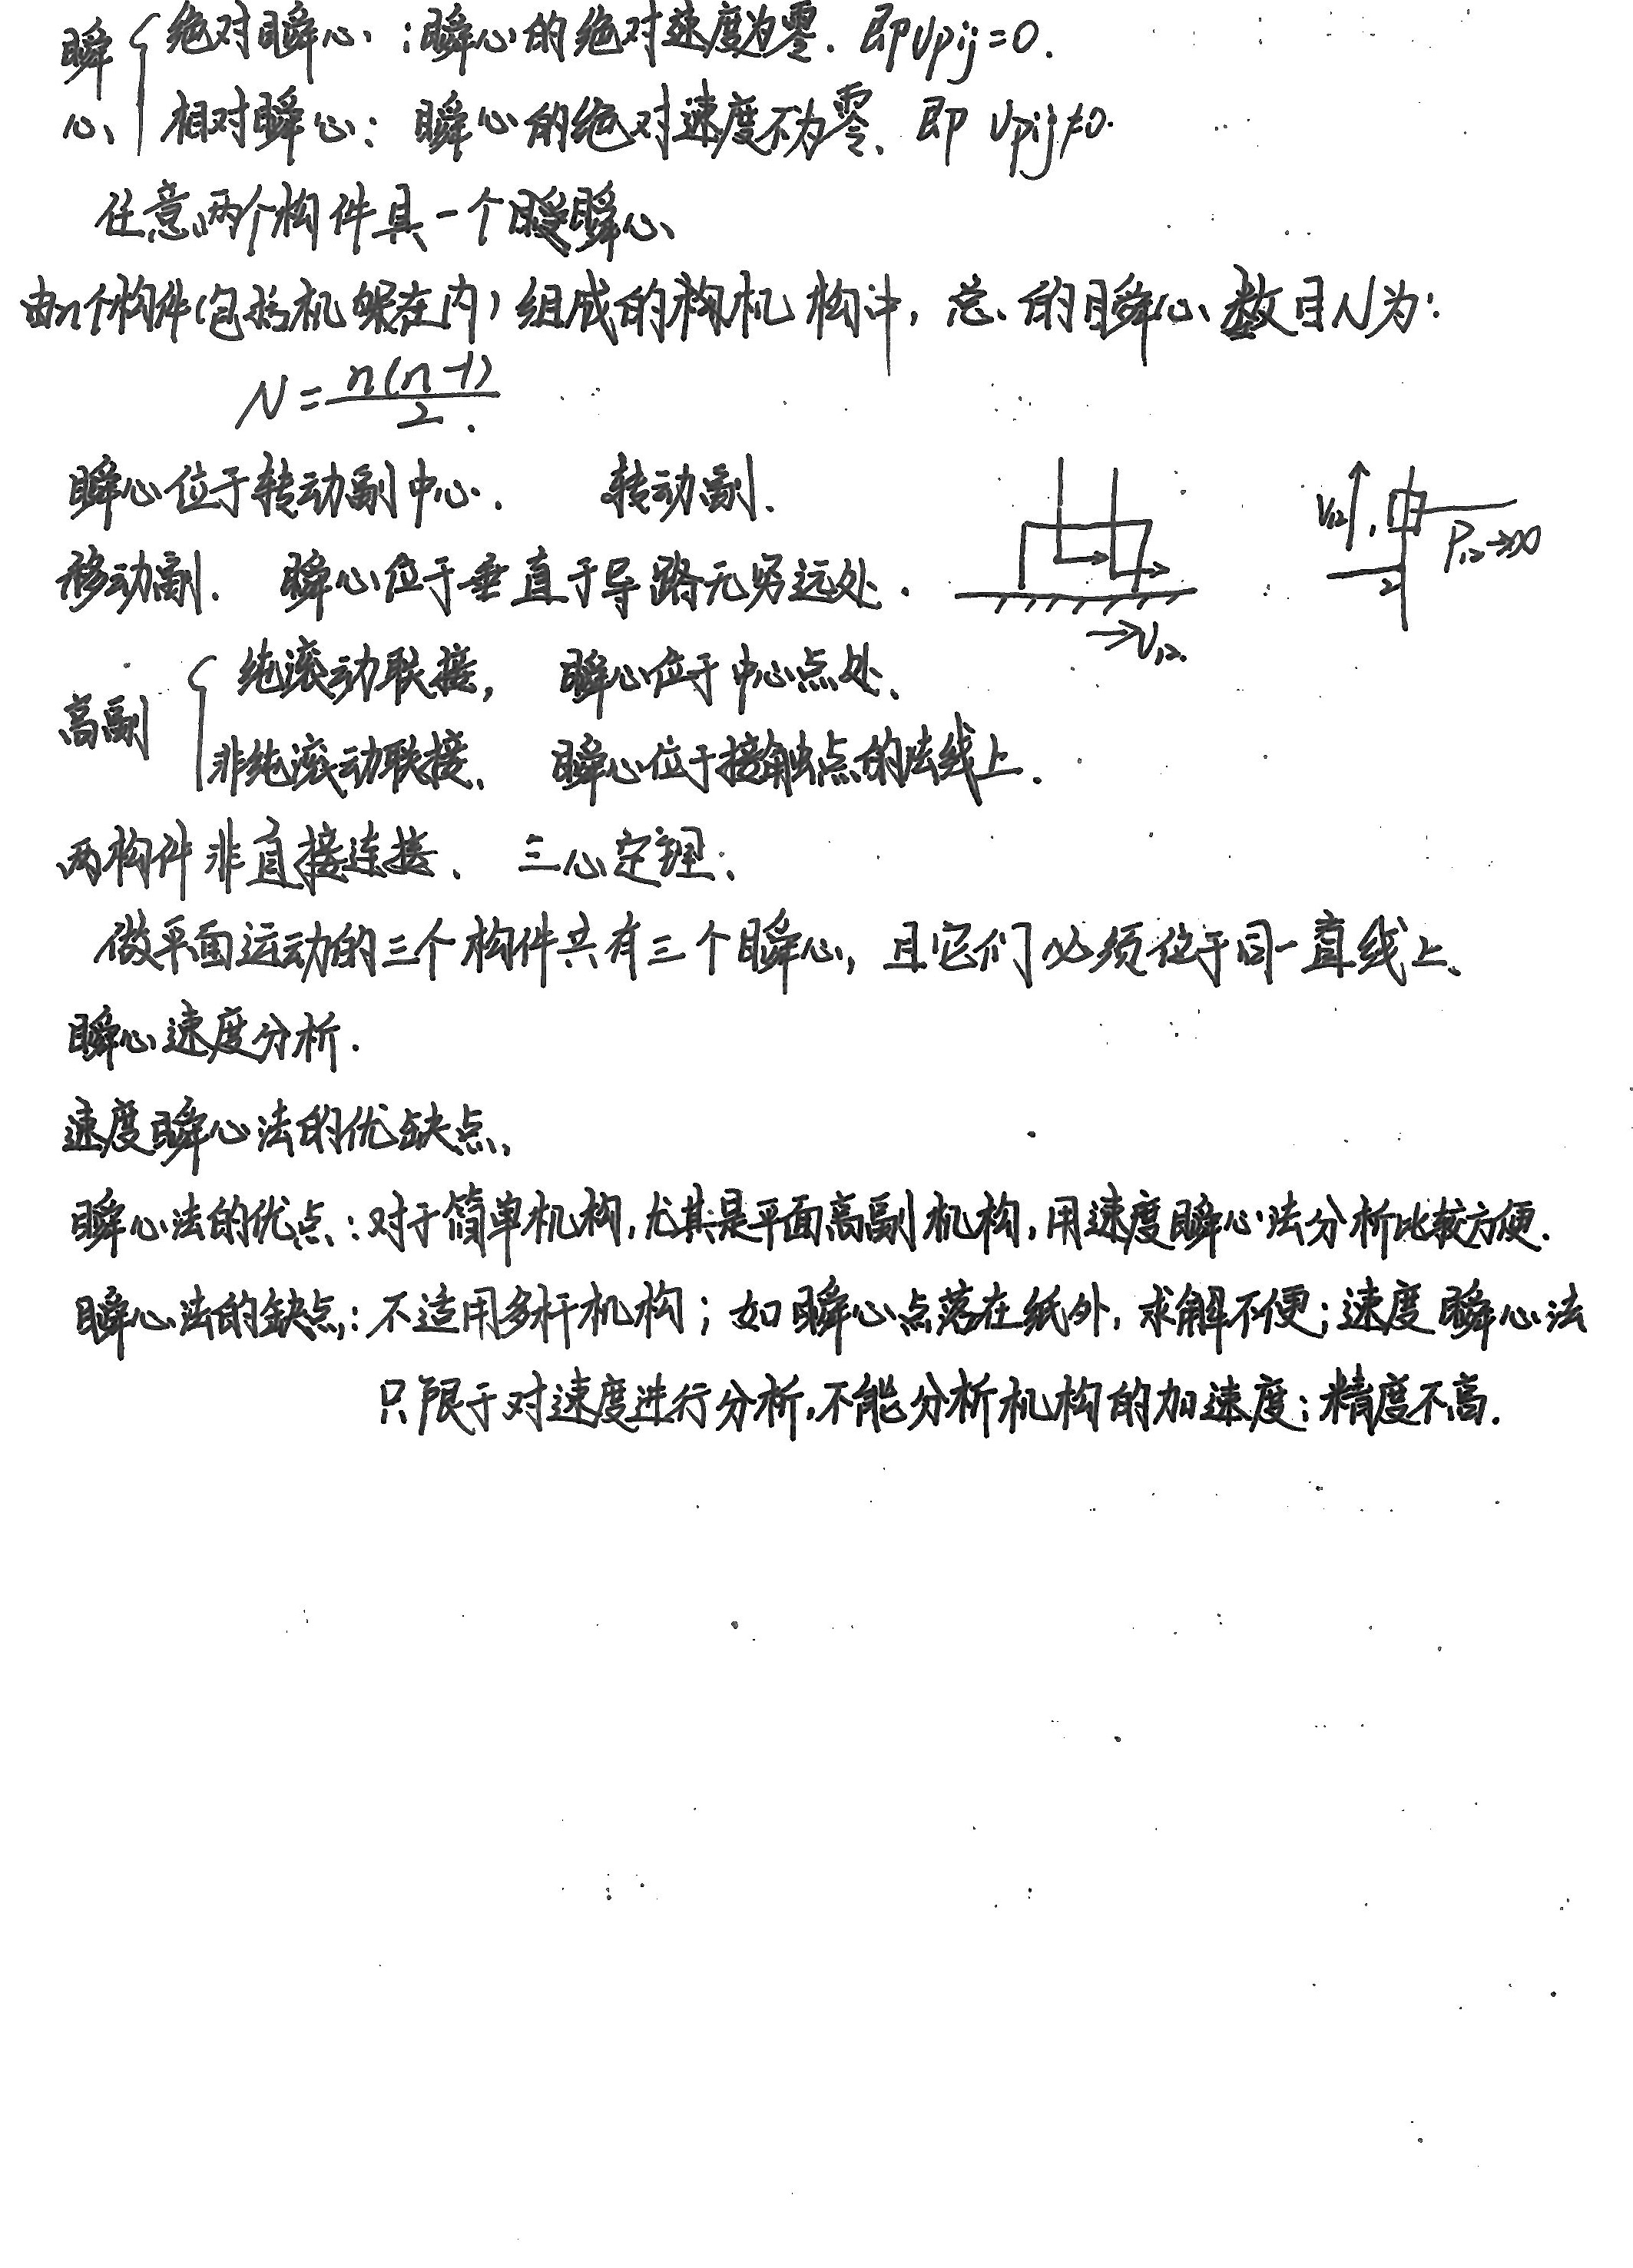 瞬心 { 绝对瞬心：瞬心的绝对速度为零. 即υpij=0.
相对瞬心：瞬心的绝对速度不为零、即 υpij≠0.
任意两个构件具一个瞬心、
由n个构件(包括机架在内)组成的机构中，总的瞬心数目N为：
N=n(n-1)/2.
瞬心位于转动副中心. 转动副.
移动副. 瞬心位于垂直于导路无穷远处.
V12 1 2 P12→∞
→υ12.
高副 { 纯滚动联接， 瞬心位于中心点处、
非纯滚动联接、 瞬心位于接触点的法线上.
两构件非直接连接、 三心定理：
做平面运动的三个构件共有三个瞬心，且它们必须位于同一直线上、
瞬心速度分析.
速度瞬心法的优缺点、
瞬心法的优点：对于简单机构，尤其是平面高副机构，用速度瞬心法分析比较方便.
瞬心法的缺点：不适用多杆机构；如瞬心点落在纸外，求解不便；速度瞬心法
只限于对速度进行分析，不能分析机构的加速度；精度不高.